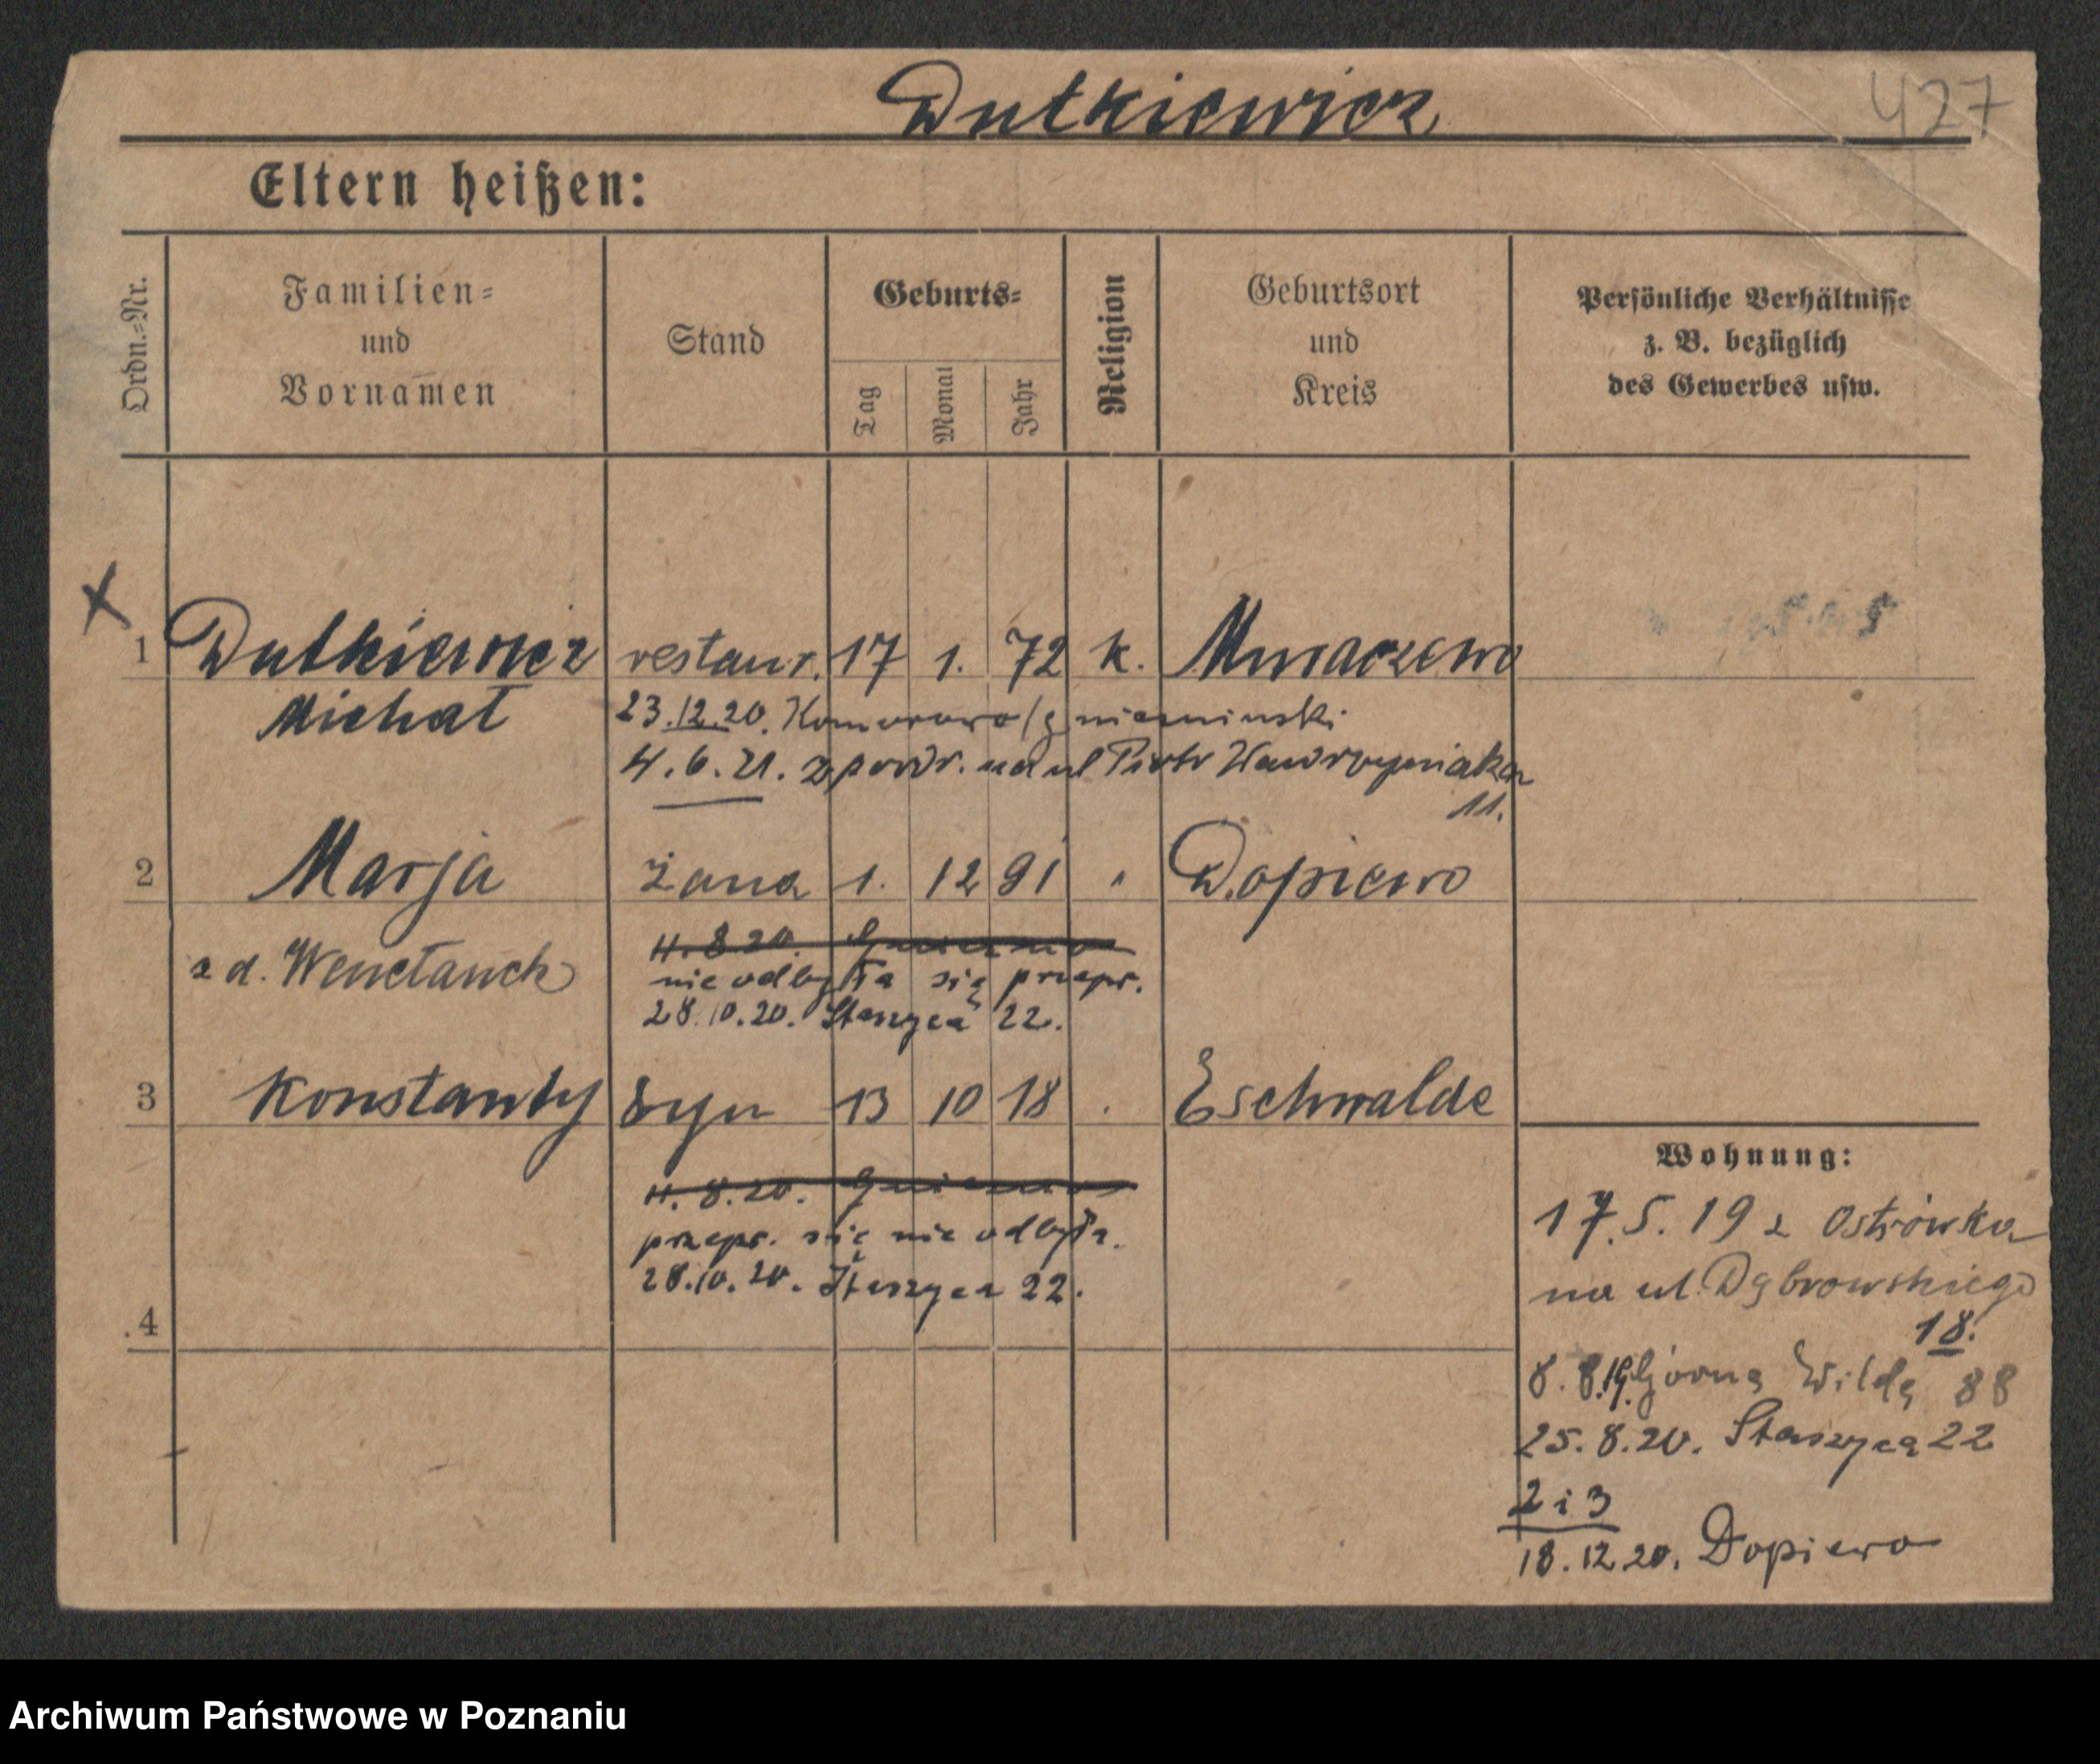 Dutkiewicz
427
Eltern heißen:
Ordn.-Nr.
Familien-
und
Vornamen
Stand
Geburts-
Tag
Monat
Jahr
Religion
Geburtsort
und
Kreis
Persönliche Verhältnisse
z. B. bezüglich
des Gewerbes usw.
1 Dutkiewicz restaur. 17 1. 72 k. Muraczewo
Michał
23.12.20. Komorowo/gnieźninski
4.6.21. z powr. na ul Piotr Wawrzyniaka
11.
2 Marja żona 1. 12 91 " Dopiewo
z d.
11.8.20. Gniezno
nie odbyła się przepr.
28.10.20. Staszyca 22.
3 Konstanty Syn 13 10 18 . Eschwalde
11.8.20. Gniezno
przepr. się nie odbyła.
28.10.20. Staszyca 22.
4
Wohnung:
17.5.19 z Ostrówka
na ul. Dąbrowskiego
18.
8.8.19. Górną Wildę 88
25.8.20. Staszyca 22
2 i 3
18.12.20. Dopiewo
Archiwum Państwowe w Poznaniu